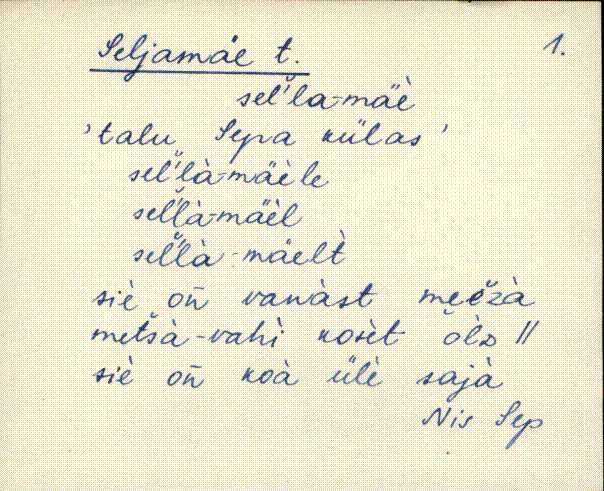 Seljamäe t. 1.
sel'la-mäè
'talu Sepa külas'
sel'là-mäèle
sel'là-mäèl
sel'là-mäelt̀
siè on̄ vanàst mečzà
metšà-vahì kosèt ȭlD ||
siè on̄ koà ülè sajà
Nis Sep